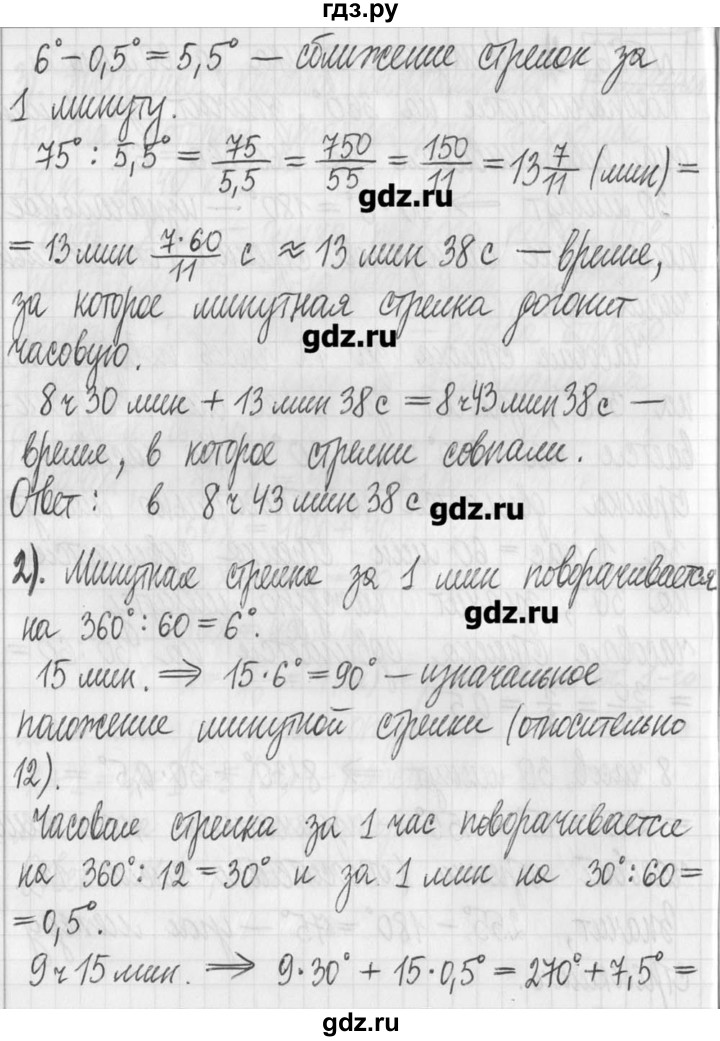 гдз.ру
6° – 0,5° = 5,5° — сближение стрелок за
1 минуту.
75° : 5,5° = 75/5,5 = 750/55 = 150/11 = 13 7/11 (мин) =
gdz.ru
= 13 мин 7·60/11 с ≈ 13 мин 38 с — время,
за которое минутная стрелка догонит
gdz.ru
часовую.
8 ч 30 мин + 13 мин 38 с = 8 ч 43 мин 38 с —
время, в которое стрелки совпали.
Ответ: в 8 ч 43 мин 38 с
gdz.ru
2). Минутная стрелка за 1 мин поворачивается
gdz.ru
на 360° : 60 = 6°.
15 мин. ⇒ 15·6° = 90° — изначальное
положение минутной стрелки (относительно
12).
Часовая стрелка за 1 час поворачивается
на 360° : 12 = 30° и за 1 мин на 30° : 60 =
= 0,5°.
9 ч 15 мин. ⇒ 9·30° + 15·0,5° = 270° + 7,5° =
gdz.ru